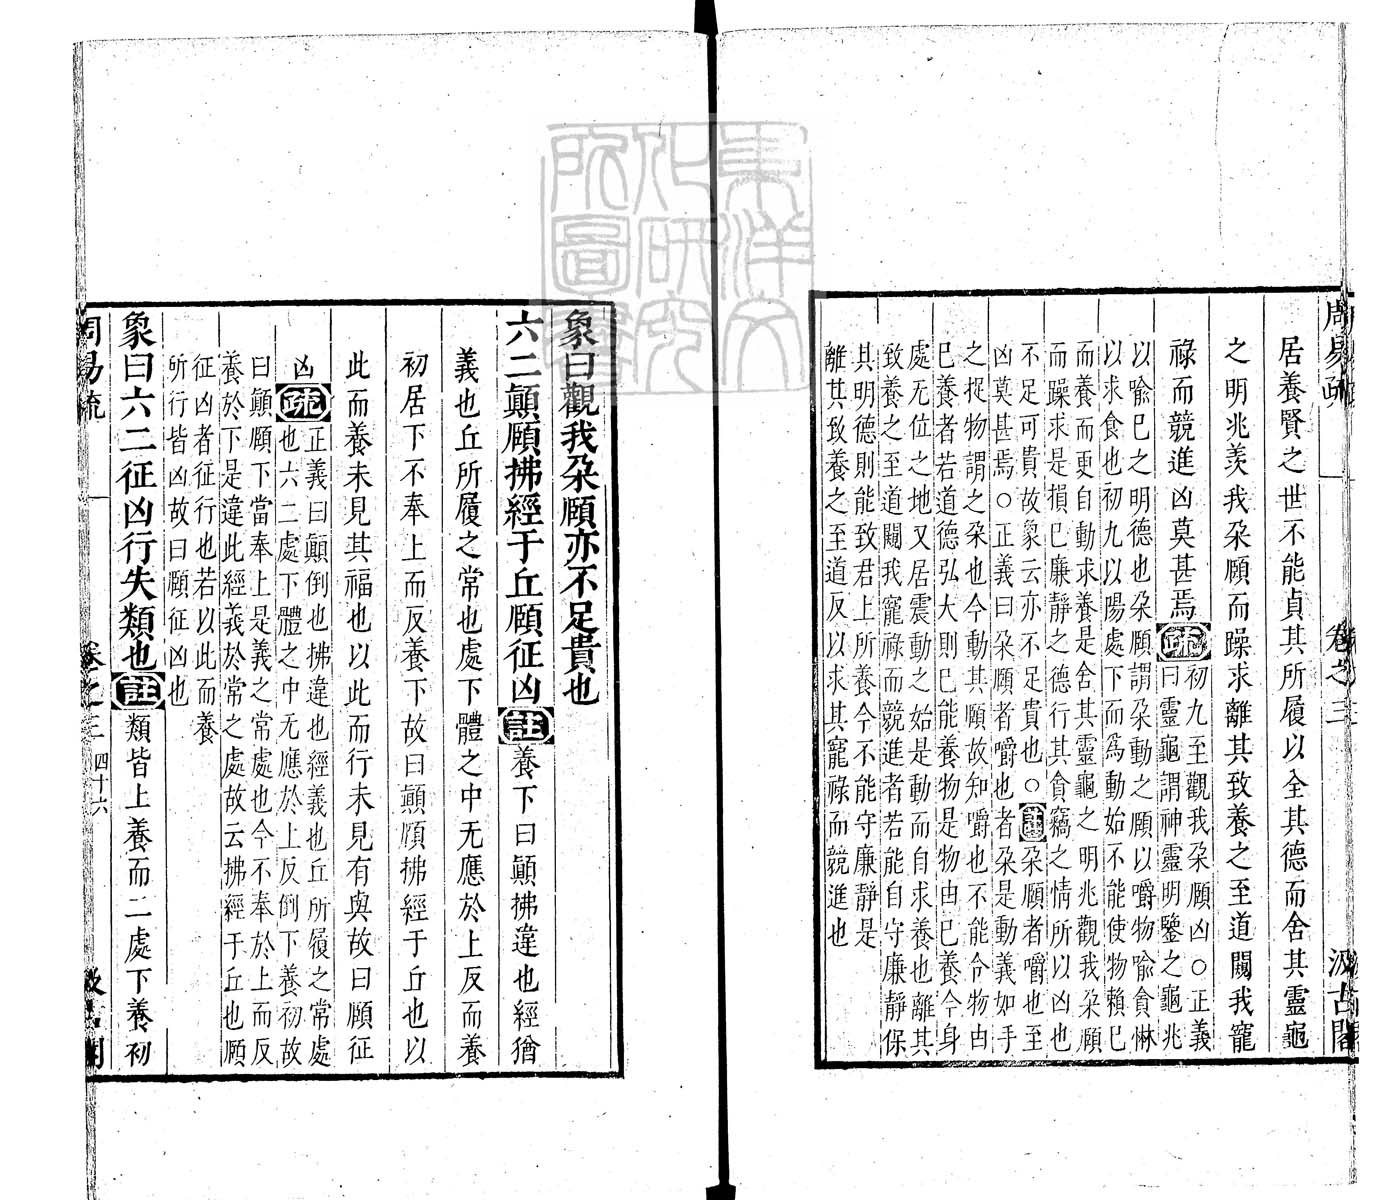 周易疏
卷之三
汲古閣
居養賢之世不能貞其所履以全其德而舍其靈龜
之明兆羡我朶頤而躁求離其致養之至道闚我寵
祿而競進凶莫甚焉疏初九至觀我朶頤凶○正義
曰靈龜謂神靈明鑒之龜兆
以喻巳之明德也朶頤謂朶動之頤以嚼物喻貪惏
以求食也初九以陽處下而爲動始不能使物賴巳
而養而更自動求養是舍其靈龜之明兆觀我朶頤
而躁求是損巳廉靜之德行其貪竊之情所以凶也
不足可貴故象云亦不足貴也○註朶頤者嚼也至
凶莫甚焉○正義曰朶頤者嚼也者朶是動義如手
之捉物謂之朶也今動其頤故知嚼也不能令物由
巳養者若道德弘大則巳能養物是物由巳養今身
處无位之地又居震動之始是動而自求養也離其
致養之至道闚我寵祿而競進者若能自守廉靜保
其明德則能致君上所養今不能守廉靜是
離其致養之至道反以求其寵祿而競進也
象曰觀我朶頤亦不足貴也
六二顚頤拂經于丘頤征凶註養下曰顚拂違也經猶
義也丘所履之常也處下體之中无應於上反而養
初居下不奉上而反養下故曰顚頤拂經于丘也以
此而養未見其福也以此而行未見有與故曰頤征
凶疏正義曰顚倒也拂違也經義也丘所履之常處
也六二處下體之中无應於上反倒下養初故
曰顚頤下當奉上是義之常處也今不奉於上而反
養於下是違此經義於常之處故云拂經于丘也頤
征凶者征行也若以此而養
所行皆凶故曰頤征凶也
象曰六二征凶行失類也註類皆上養而二處下養初
周易疏
卷之三
四十六
東洋文
化研究
所圖書